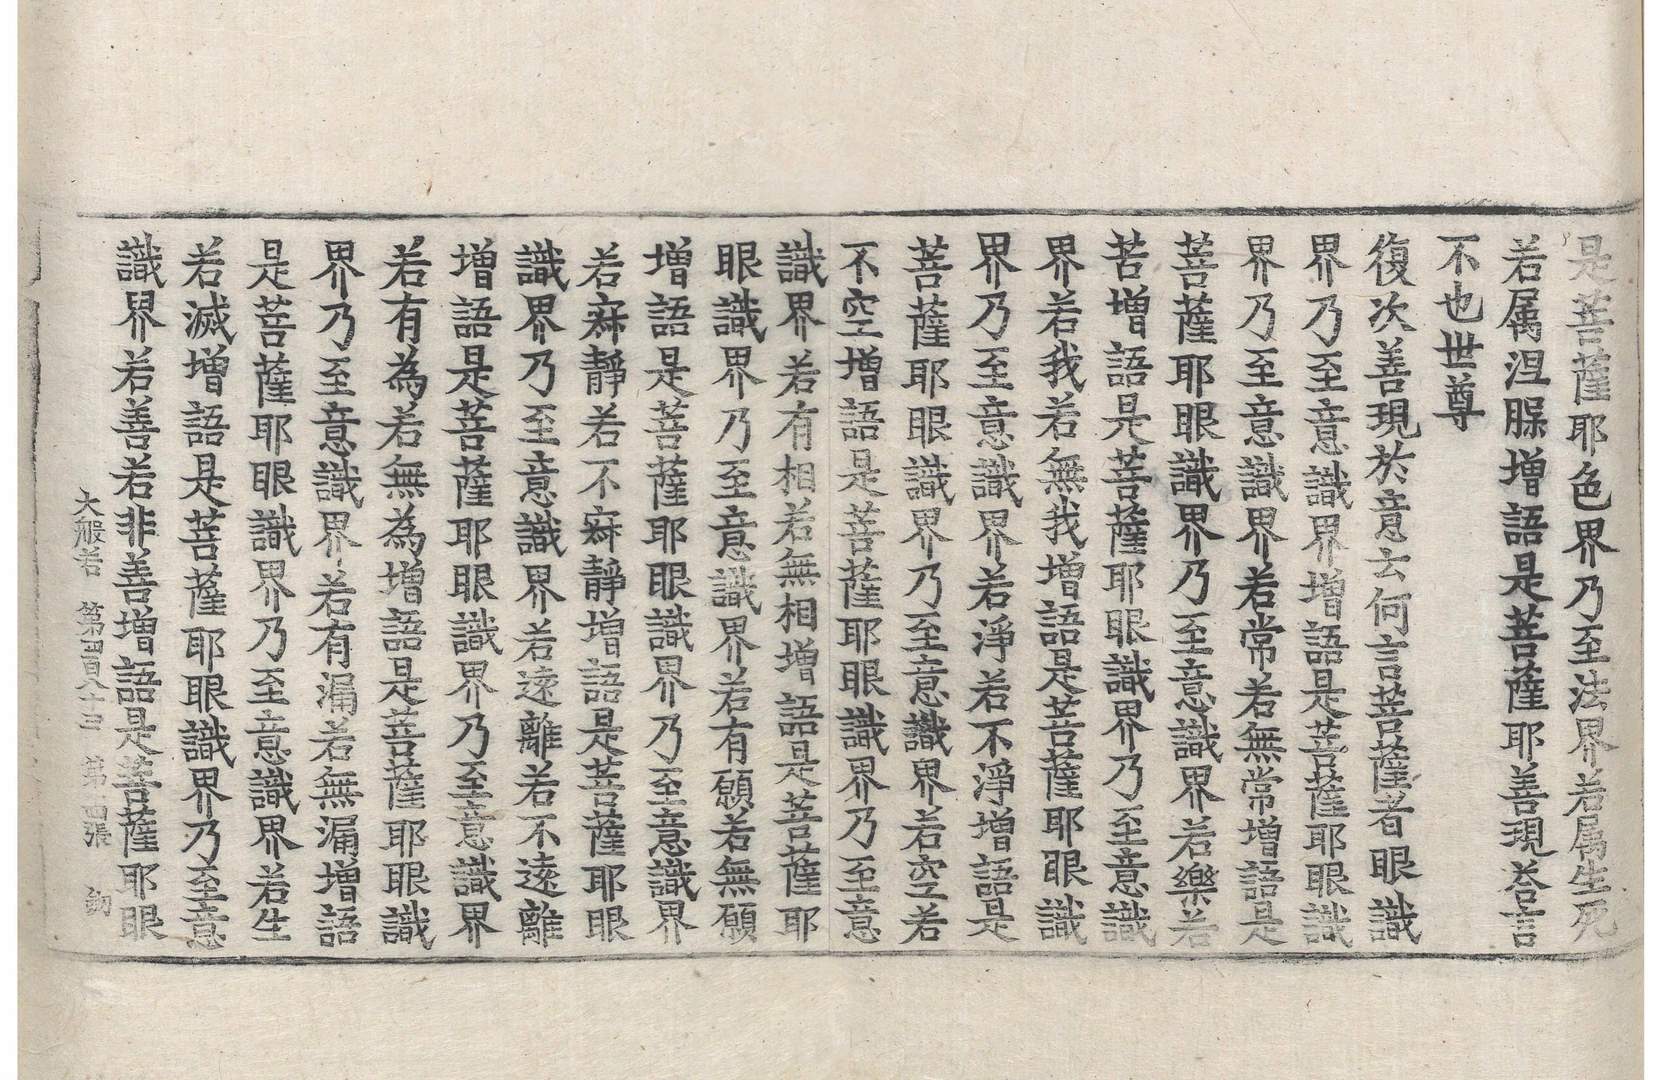 是菩薩耶色界乃至法界若属生死
若属涅槃增語是菩薩耶善現荅言
不也世尊
復次善現於意云何言菩薩者眼識
界乃至意識界增語是菩薩耶眼識
界乃至意識界若常若無常增語是
菩薩耶眼識界乃至意識界若樂若
苦增語是菩薩耶眼識界乃至意識
界若我若無我增語是菩薩耶眼識
界乃至意識界若淨若不淨增語是
菩薩耶眼識界乃至意識界若空若
不空增語是菩薩耶眼識界乃至意
識界若有相若無相增語是菩薩耶
眼識界乃至意識界若有願若無願
增語是菩薩耶眼識界乃至意識界
若寂靜若不寂靜增語是菩薩耶眼
識界乃至意識界若遠離若不遠離
增語是菩薩耶眼識界乃至意識界
若有為若無為增語是菩薩耶眼識
界乃至意識界若有漏若無漏增語
是菩薩耶眼識界乃至意識界若生
若滅增語是菩薩耶眼識界乃至意
識界若善若非善增語是菩薩耶眼
大般若 第四百八十三 第四張